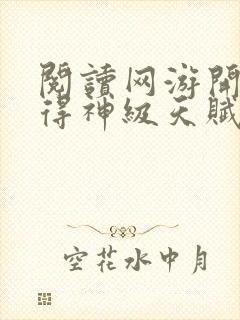 閱讀网游開
得神級天賦
空花水中月